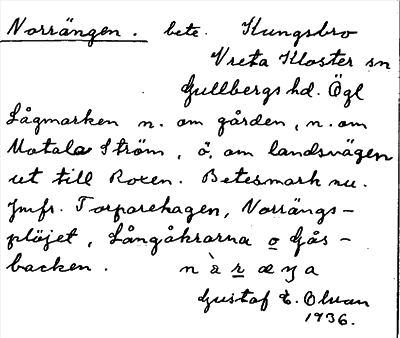 Norrängen. bete. Kungsbro
Vreta Kloster sn
Gullbergs hd. Ögl
Lågmarken n. om gården, n. om
Motala Ström, ö. om landsvägen
ut till Roxen. Betesmark nu.
Jmfr. Torparehagen, Norrängs-
plöjet, Långåkrarna o Gås-
backen. n à r æ ŋ a
Gustaf E. Olvan
1936.